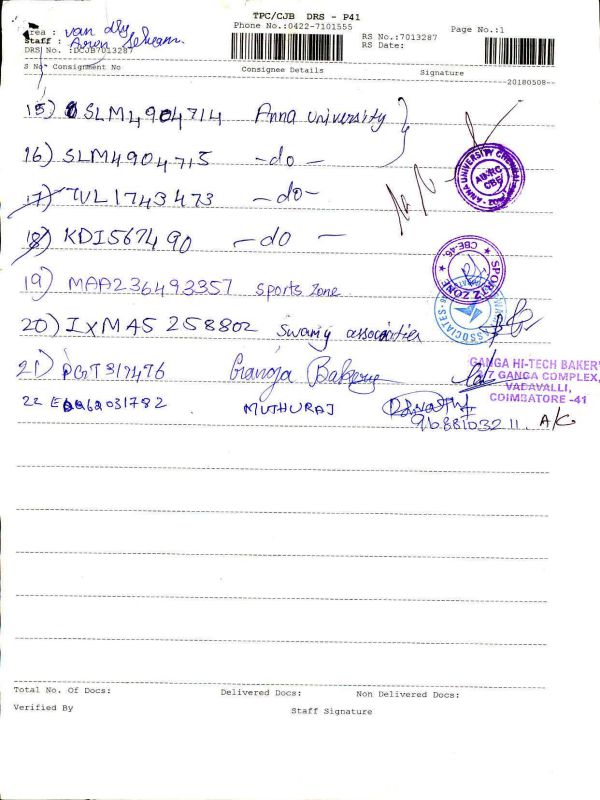 TPC/CJB DRS - P41
Phone No.:0422-7101555
Page No.:1
Area : van dly
Staff : Arun Sekaran.
RS No.:7013287
DRS No. :DCJB7013287
RS Date:
S No Consignment No Consignee Details Signature
20180508
15) SLM4904714 Anna University
16) SLM4904715 - do -
17) TVL1743473 - do -
18) KDI567490 - do -
ANNA UNIVERSITY
CBE
19) MAA236493357 Sports Zone
SPORTZ ZONE
CBE-46.
20) IXMAS 258802 Swamy associaties
ASSOCIATES
21) PGT317476 Ganga Bakery
GANGA HI-TECH BAKERY
GANGA COMPLEX,
VADAVALLI,
COIMBATORE -41
22 2031782 MUTHURAJ
9688103211. A/C
Total No. Of Docs: Delivered Docs: Non Delivered Docs:
Verified By Staff Signature